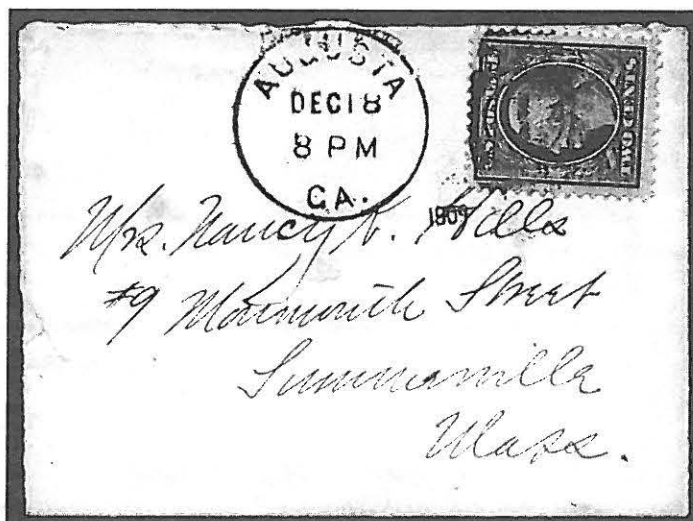 AUGUSTA
DEC 18
8 PM
GA.
TWO CENTS
1909
Mrs. Nancy V. Hills
#9 Monmouth Street
Summerville
Mass.